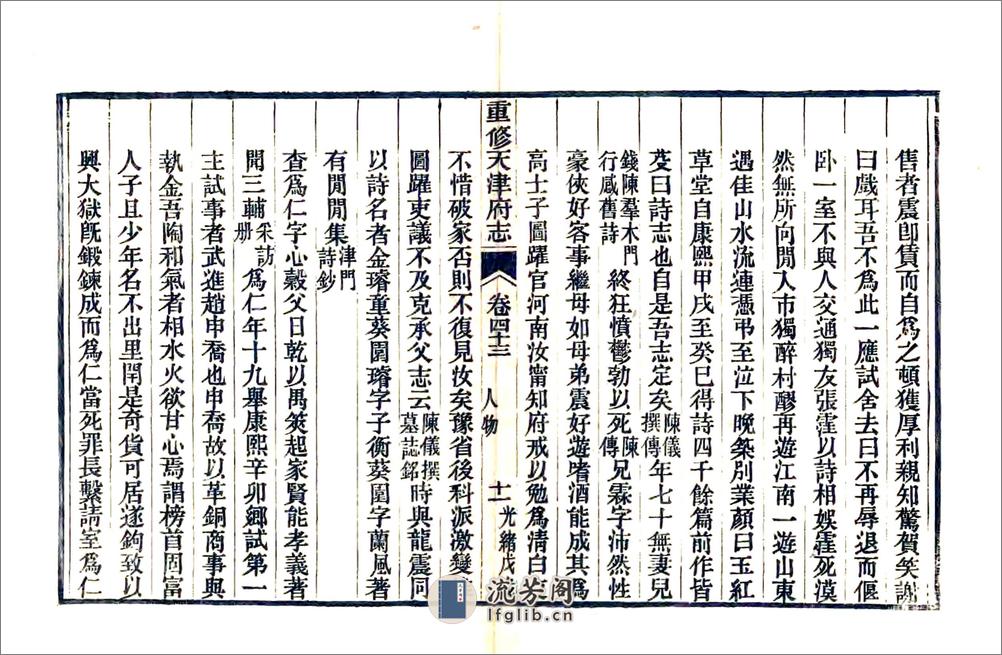 售者震卽賃而自爲之頓獲厚利親知驚賀笑謝
曰戲耳吾不爲此一應試舍去曰不再辱退而偃
臥一室不與人交通獨友張霔以詩相娛霔死漠
然無所向閒入市獨醉村醪再遊江南一遊山東
遇佳山水流連憑弔至泣下晚築別業顏曰玉紅
草堂自康熙甲戌至癸巳得詩四千餘篇前作皆
芟曰詩志也自是吾志定矣陳儀撰傳年七十無妻兒
錢陳羣木門行感舊詩終狂憤鬱勃以死陳傳兄霖字沛然性
豪俠好客事繼母如母弟震好遊嗜酒能成其爲
高士子圖躍官河南汝甯知府戒以勉爲淸白吏
不惜破家否則不復見汝矣豫省後科派激變
圖躍吏議不及克承父志云陳儀撰墓誌銘時與龍震同
以詩名者金璿童葵園璿字子衡葵園字蘭風著
有閒閒集津門詩鈔
查爲仁字心榖父日乾以禺筴起家賢能孝義著
聞三輔采訪册爲仁年十九舉康熙辛卯鄉試第一
主試事者武進趙申喬也申喬故以革銅商事與
執金吾陶和氣者相水火欲甘心焉謂榜首固富
人子且少年名不出里閈是奇貨可居遂鉤致以
興大獄旣鍛鍊成而爲仁當死罪長繫請室爲仁
重修天津府志
卷四十三
人物
十一
光緒戊
流芳阁
lfglib.cn